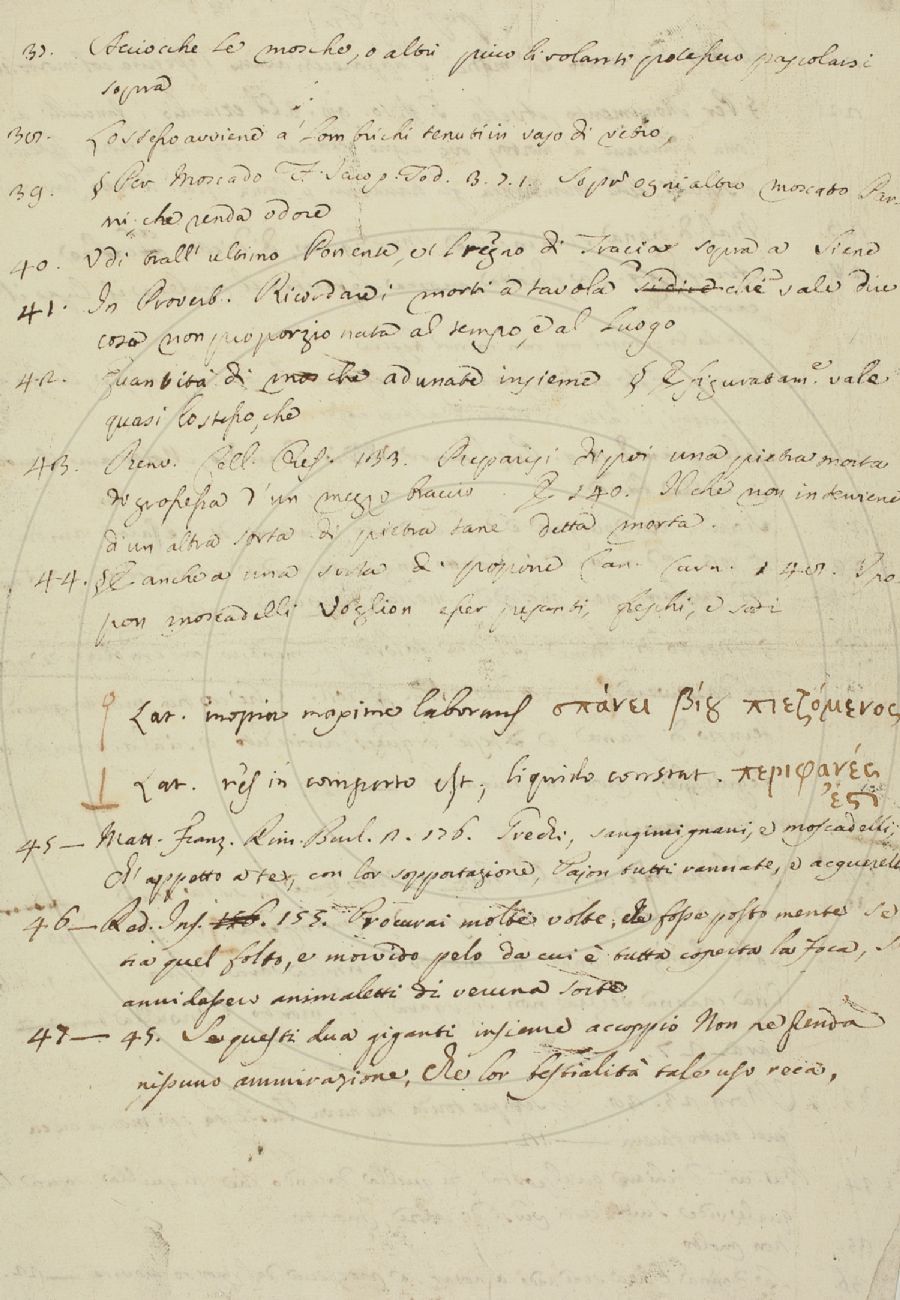 37. Acciocche le mosche, o altri piccoli volanti potessero pascolarsi
sopra
38. Lo stesso avviene a' lombrichi tenuti in vaso di vetro,
39. § Per Moscado Fr. Jacop. Tod. 3. 7. 1. Sopr' ogni altro moscato Par-
mi, che renda odore
40. Vdi trall' ultimo Ponente, e 'l regno di Tracia sopra a Siene
41. In Proverb. Ricordare i morti a tavola si dice che vale dire
cosa non proporzionata al tempo, e al luogo
42. quantità di mosche adunate insieme § E figuratam.e vale
quasi lo stesso, che
43. Benv. Cell. Oref. 133. Preparisi di poi una pietra morta
di grossezza d'un mezzo braccio. E 140. Il che non interviene
d'un altra sorta di pietra tane detta morta.
44. § E anche a una sorta di popone Can. Carn. 148. I po-
pon moscadelli Voglion esser pesanti, freschi, e sodi
Lat. inopia maxime laborans σπάνει βίȣ πιεζόμενος
Lat. res in comperto est, liquido constat. περιφανές
ἐςι
45 — Matt. Franz. Rim. Burl. 2. 176. Trebbi, sangimignani, e moscadelli,
Ch' appetto a te, con lor sopportazione, Pajon tutti vannate, e acquerelli
46 — Red. Ins. 156. 155. Procurai molte volte, che fosse posto mente se
tra quel folto, e morvido pelo da cui è tutta coperta la Foca, s'
annidassero animaletti di veruna sorte
47 — 45. Se questi dua giganti insieme accoppio Non ne prenda
nissuno ammirazione, Che lor bestialità tale uso reca,